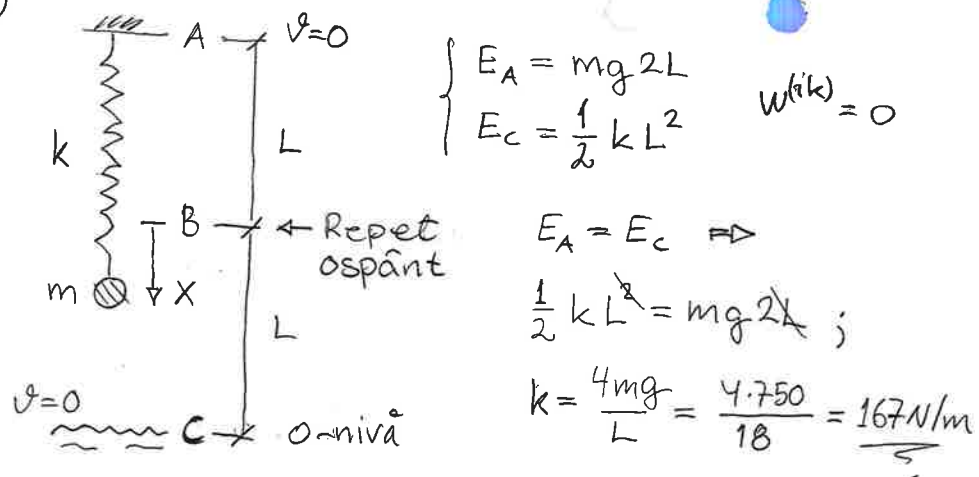 A v=0
k
L
B ← Repet
ospänt
m x
L
v=0
C 0-nivå
E_A = mg2L
E_C = 1/2 k L²
W^(ik) = 0
E_A = E_C ⇒
1/2 k L² = mg2L ;
k = 4mg/L = 4·750/18 = 167 N/m